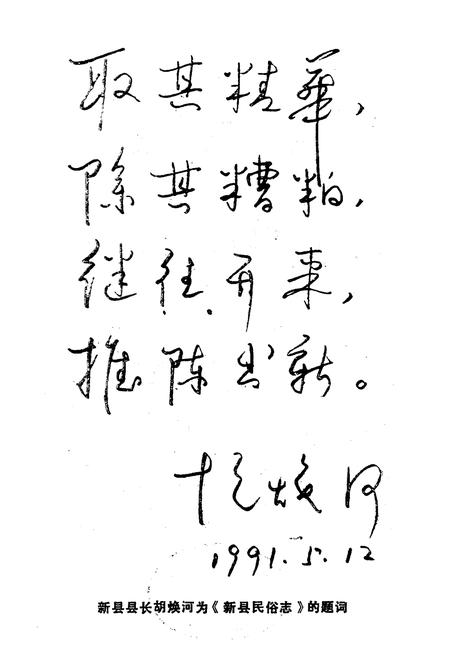 取其精華，
除其糟粕，
继往开来，
推陈出新。
胡焕河
1991.5.12
新县县长胡焕河为《新县民俗志》的题词